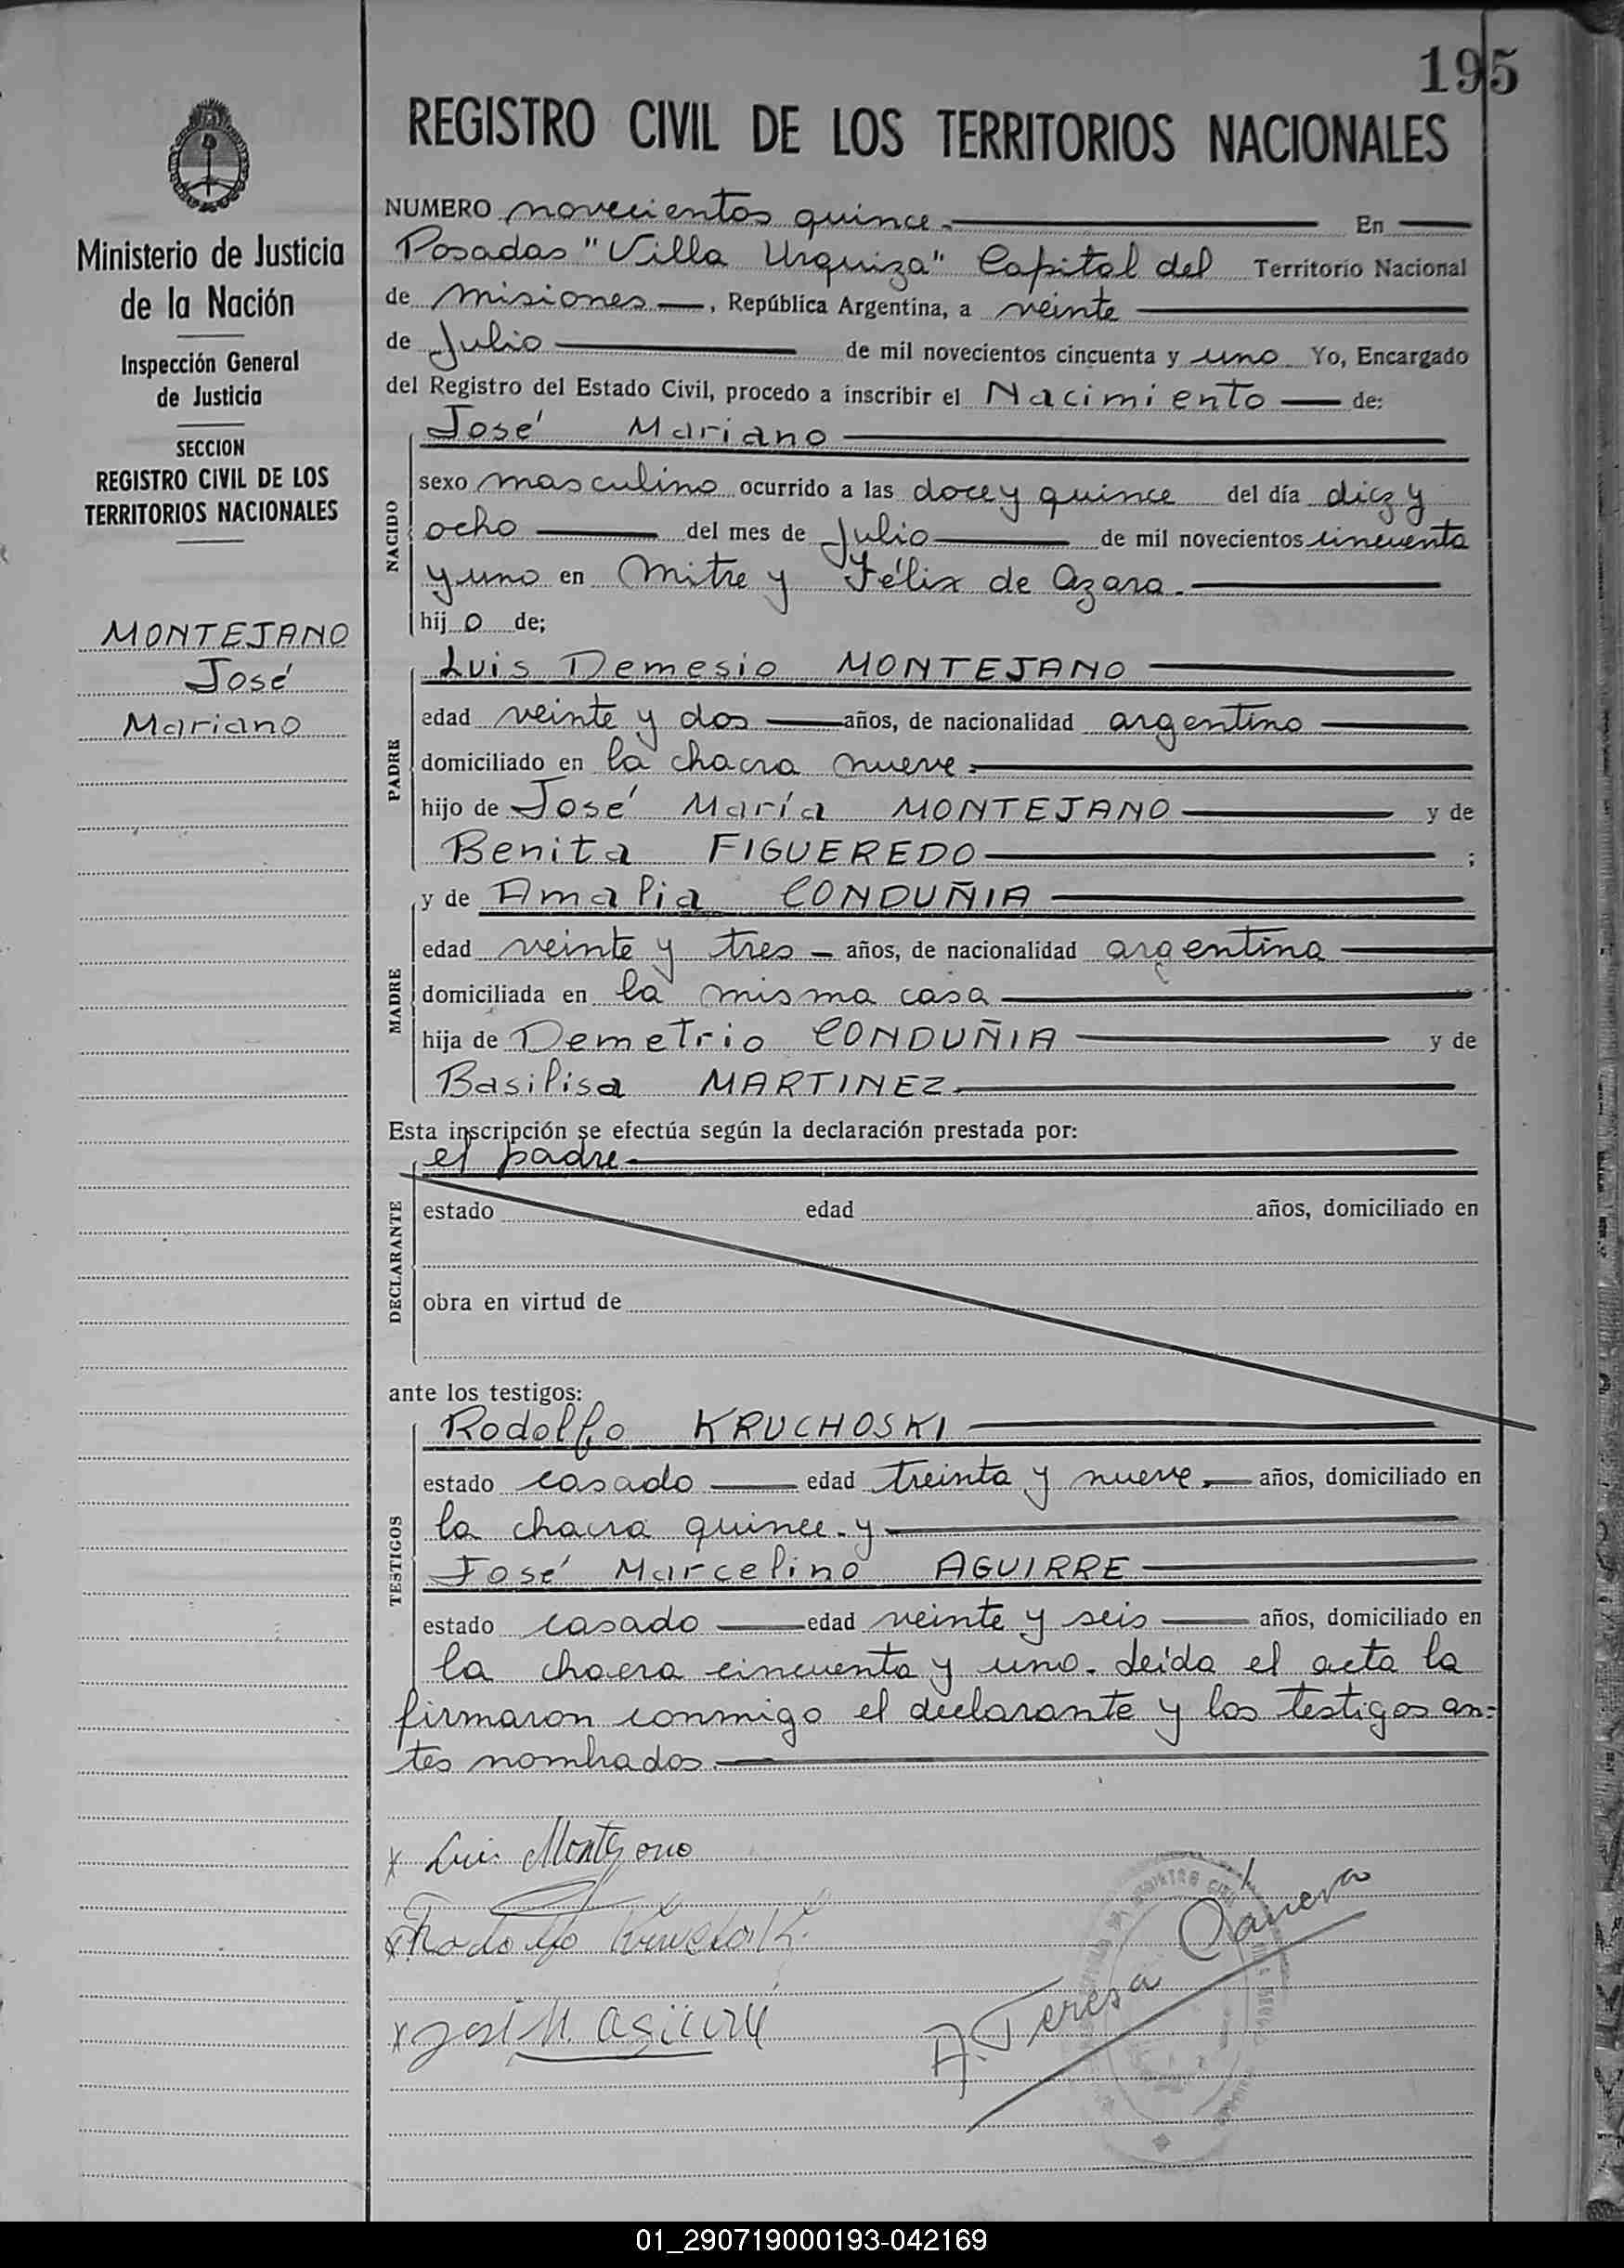 195
REGISTRO CIVIL DE LOS TERRITORIOS NACIONALES
Ministerio de Justicia
de la Nación
Inspección General
de Justicia
SECCION
REGISTRO CIVIL DE LOS
TERRITORIOS NACIONALES
MONTEJANO
José
Mariano
NUMERO novecientos quince. En
Posadas "Villa Urquiza" Capital del Territorio Nacional
de Misiones, República Argentina, a veinte
de Julio de mil novecientos cincuenta y uno Yo, Encargado
del Registro del Estado Civil, procedo a inscribir el Nacimiento de:
NACIDO
José Mariano
sexo masculino ocurrido a las doce y quince del día diez y
ocho del mes de Julio de mil novecientos cincuenta
y uno en Mitre y Félix de Azara.
hijo de;
PADRE
Luis Demesio MONTEJANO
edad veinte y dos años, de nacionalidad argentino
domiciliado en la chacra nueve.
hijo de José María MONTEJANO y de
Benita FIGUEREDO ;
MADRE
y de Amalia CONDUÑIA
edad veinte y tres años, de nacionalidad argentina
domiciliada en la misma casa
hija de Demetrio CONDUÑIA y de
Basilisa MARTINEZ
Esta inscripción se efectúa según la declaración prestada por:
DECLARANTE
el padre
estado edad años, domiciliado en
obra en virtud de
ante los testigos:
TESTIGOS
Rodolfo KRUCHOSKI
estado casado edad treinta y nueve. años, domiciliado en
la chacra quince. y
José Marcelino AGUIRRE
estado casado edad veinte y seis años, domiciliado en
la chacra cincuenta y uno. Leída el acta la
firmaron conmigo el declarante y los testigos an=
tes nombrados.
x Luis Montejano
x Rodolfo
x José M. Aguirre
A. Teresa
01_290719000193-042169